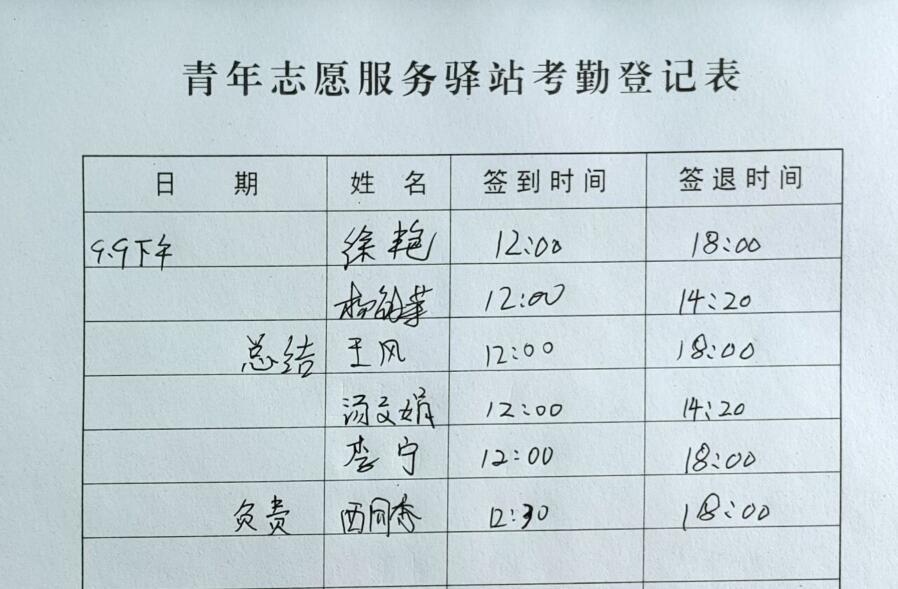 青年志愿服务驿站考勤登记表
日 期 姓 名 签到时间 签退时间
9.9下午 徐艳 12:00 18:00
12:00 14:20
总结 王风 12:00 18:00
汤文娟 12:00 14:20
李宁 12:00 18:00
负责 12:30 18:00